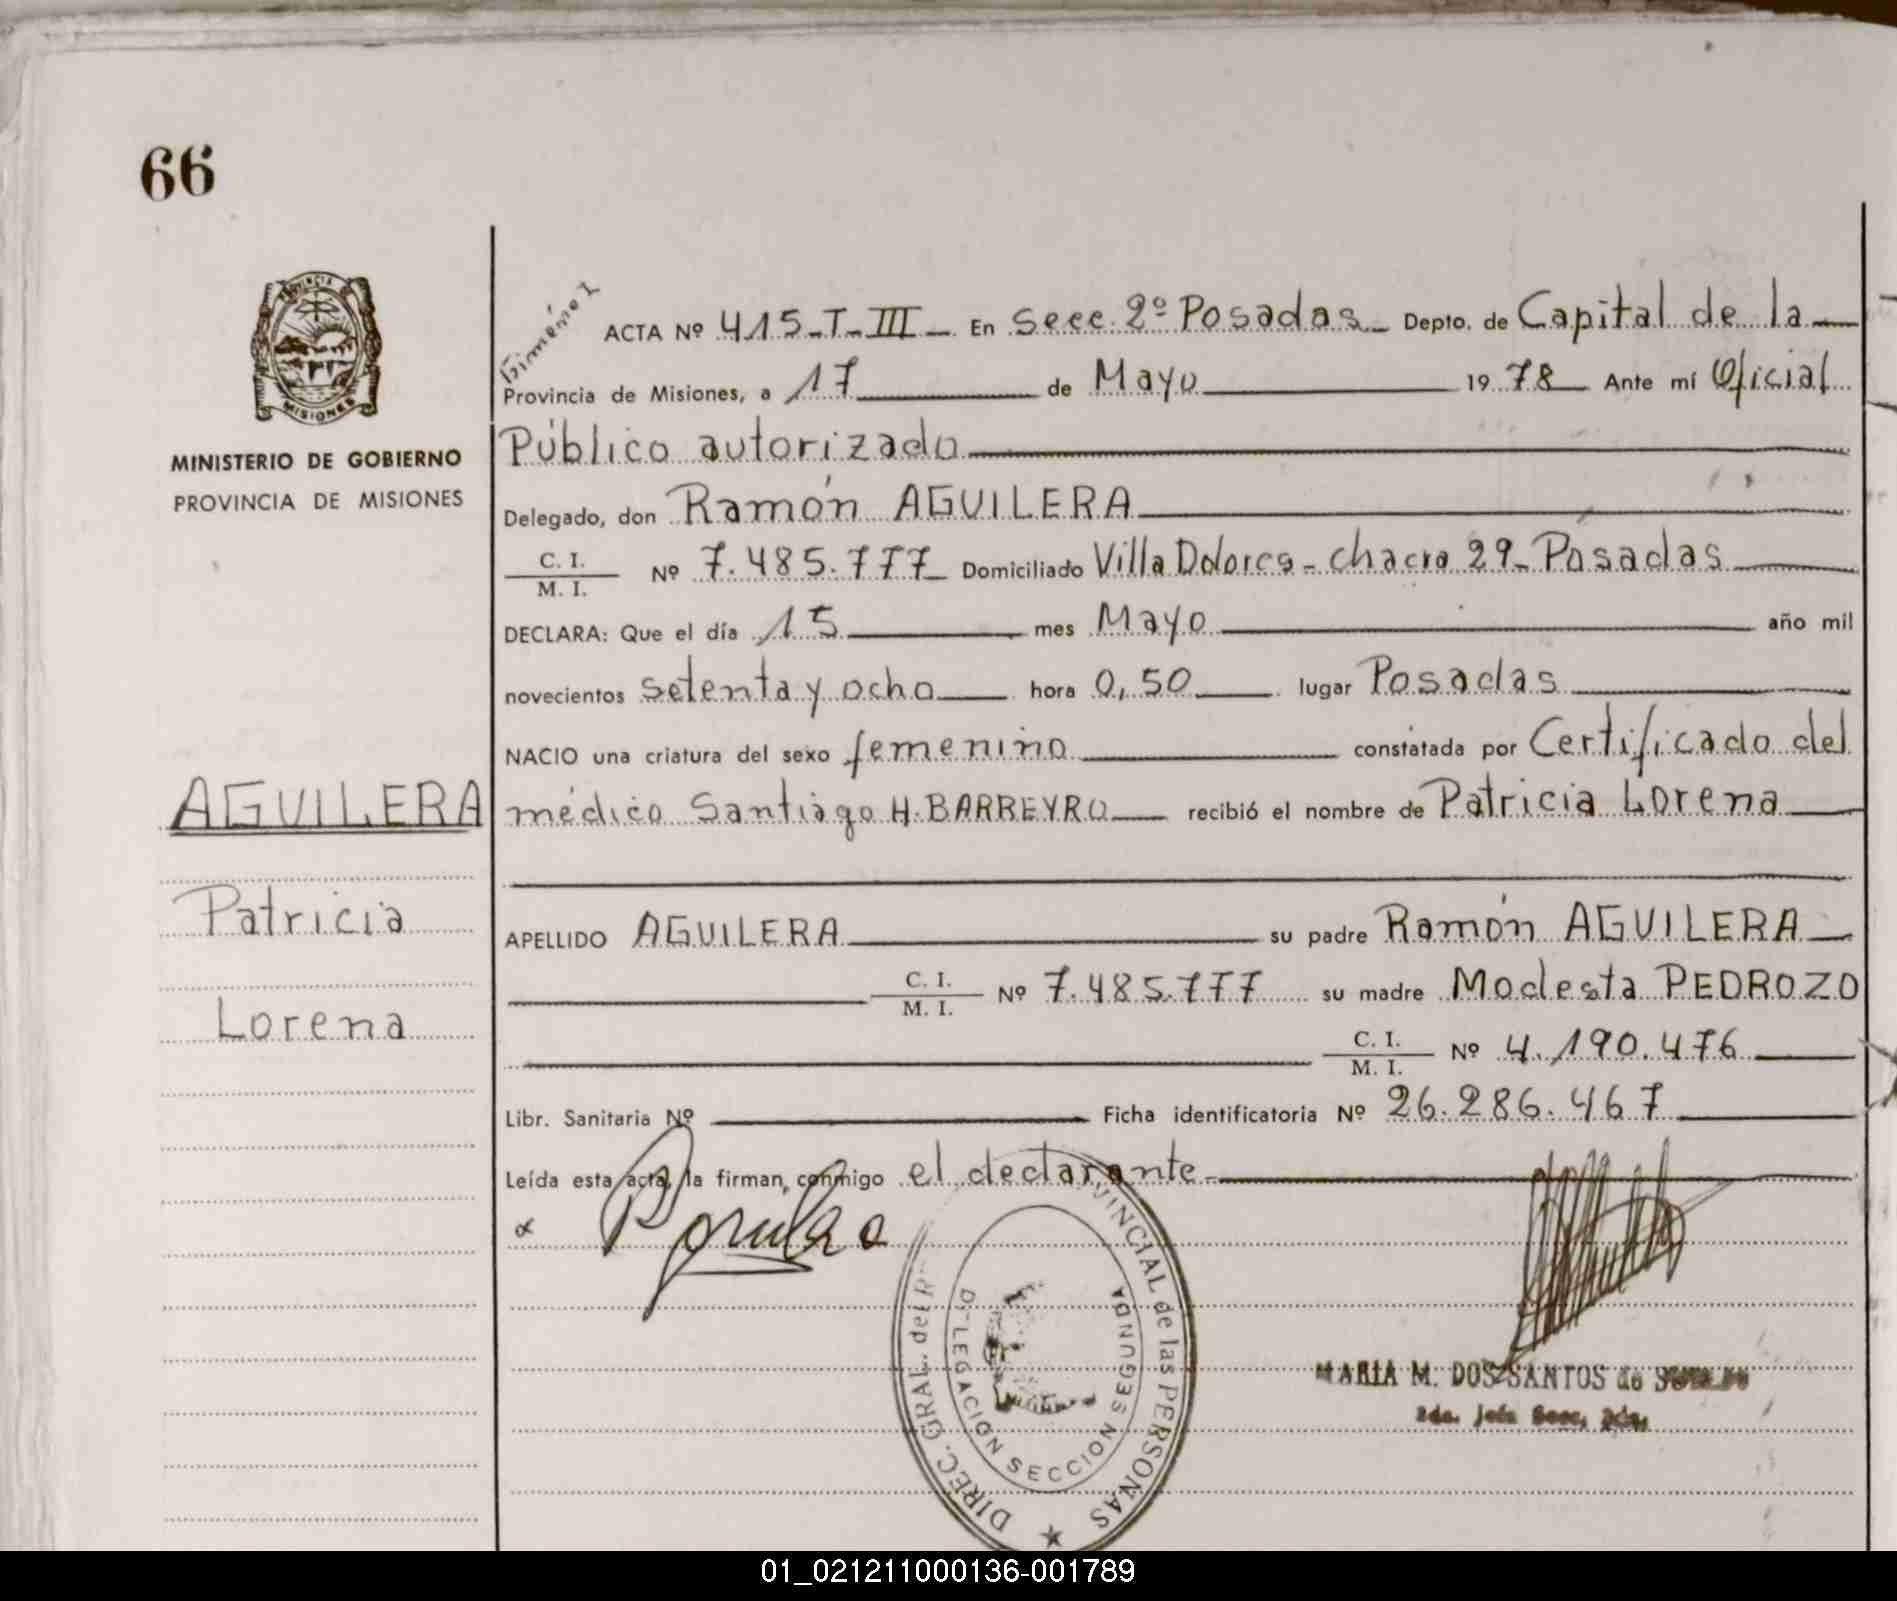 66
PROVINCIA
MISIONES
MINISTERIO DE GOBIERNO
PROVINCIA DE MISIONES
AGUILERA
Patricia
Lorena
ACTA Nº 415-T-III- En Secc. 2º Posadas- Depto. de Capital de la
Provincia de Misiones, a 17 de Mayo 1978 Ante mí Oficial
Público autorizado
Delegado, don Ramón AGUILERA
C. I.
M. I. Nº 7.485.777 Domiciliado Villa Dolores - chacra 29- Posadas
DECLARA: Que el día 15 mes Mayo año mil
novecientos setenta y ocho hora 0,50 lugar Posadas
NACIO una criatura del sexo femenino constatada por Certificado del
médico Santiago H. BARREYRO recibió el nombre de Patricia Lorena
APELLIDO AGUILERA su padre Ramón AGUILERA
C. I.
M. I. Nº 7.485.777 su madre Modesta PEDROZO
C. I.
M. I. Nº 4.190.476
Libr. Sanitaria Nº Ficha identificatoria Nº 26.286.467
Leída esta acta, la firman, conmigo el declarante
DIREC. GRAL. del PROVINCIAL de las PERSONAS
DELEGACION SECCION SEGUNDA
MARIA M. DOS SANTOS de
2da. Jefa Secc. 2da.
01_021211000136-001789